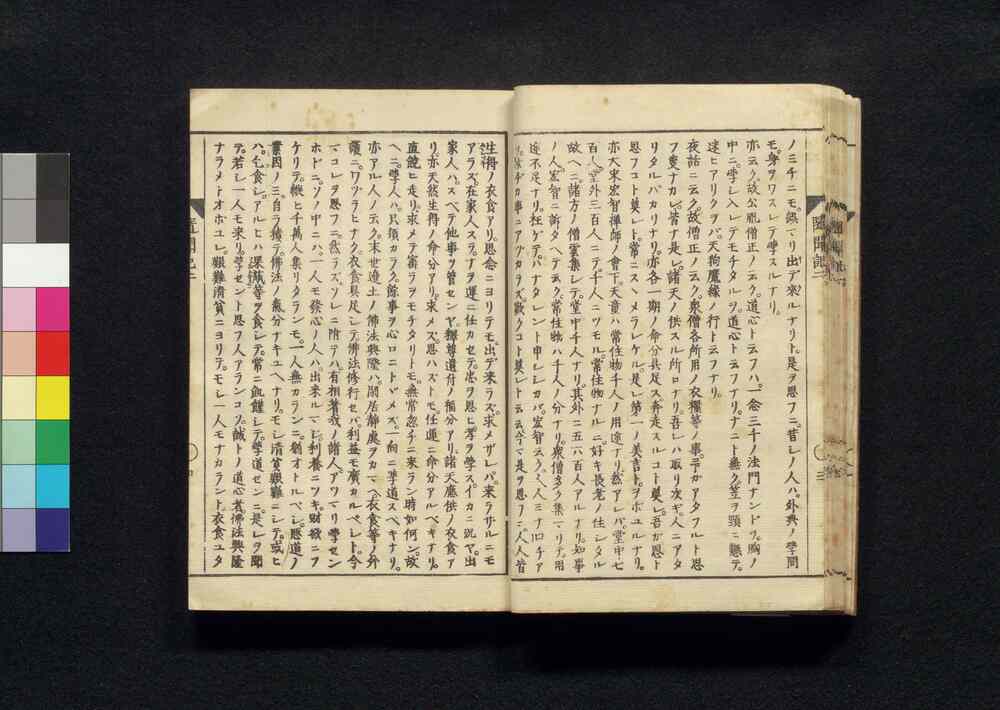 ノミチニモ、誤マリ出デ來ルナリト、是ヲ思フニ、昔レノ人ハ、外典ノ學問
モ、身ヲワスレテ學スルナリ。
亦云ク、故公胤僧正ノ云ク、道心ト云フハ、一念三千ノ法門ナンドヲ、胸ノ
中ニ、學シ入レテモチタルヲ、道心ト云フナリ、ナニト無ク笠ヲ頸ニ懸テ、
迷ヒアリクヲバ、天狗魔緣ノ行ト云フナリ。
夜話ニ云ク、故僧正ノ云ク、衆僧各所用ノ衣粮等ノ事、予ガアタフルト思
フ事ナカレ、皆ナ是レ諸天ノ供スル所ロナリ、吾レハ取リ次ギ人ニアタ
リタルバカリナリ、亦各一期ノ命分具足ス、奔走スルコト莫レ、吾ガ恩ト
思フコト莫レト、常ニスヽメラレケル、是レ第一ノ美言トヲボユルナリ。
亦大宋宏智禪師ノ會下、天童ハ常住物千人ノ用途ナリ、然アレバ堂中七
百人、堂外三百人ニテ、千人ニツモル常住物ナルニ、好キ長老ノ住シタル
故ヘニ、諸方ノ僧雲集シテ、堂中千人ナリ、其外ニ五六百人アルナリ、知事
ノ人、宏智ニ訴タヘテ云ク、常住物ハ千人ノ分ナリ、衆僧多ク集マリテ、用
途不足ナリ、枉ゲテハナタレント申シシカバ、宏智云ク、人人ミナ口チア
リ、汝ヂガ事ニアヅカラズ、歎クコト莫レト云云、今マ是ヲ思フニ、人人皆
生得ノ衣食アリ、思念ニヨリテモ、出デ來ラズ、求メザレバ、來ラザルニモ
アラズ、在家人スラ、ナヲ運ニ任カセテ、忠ヲ思ヒ孝ヲ學ス、イカニ況ヤ、出
家人ハ、スベテ他事ヲ管センヤ、釋尊遺付ノ福分アリ、諸天應供ノ衣食ア
リ、亦天然生得ノ命分アリ、求メズ思ハズトモ、任運ニ命分アルベキナリ、
直饒ヒ走リ求メテ寶ラヲモチタリトモ、無常忽チニ來ラン時如何ン、故
ヘニ、學人ハ只須カラク餘事ヲ心ロニトヾメズ、一向ニ學道スベキナリ。
亦アル人ノ云ク、末世邊土ノ佛法興隆ハ、閑居靜處ヲカマヘ、衣食等ノ外
護ニ、ワヅラヒナク、衣食具足シテ、佛法修行セバ、利益モ廣カルベシト、今
マコレヲ思フニ、然ラズ、ソレニ附テハ、有相著我ノ諸人アツマリ學セン
ホドニ、ソノ中ニハ、一人モ發心ノ人ハ出來ルマジ、利養ニツキ財欲ニフ
ケリテ、縱ヒ千萬人集リタランモ、一人無カランニ、猶オトルベシ、惡道ノ
業因ノミ、自ラ積テ、佛法ノ氣分ナキユヘナリ、モシ淸貧艱難ニシテ、或ヒ
ハ乞食シ、アルヒハ果蓏等ヲ食シテ、常ニ飢饉シテ學道センニ、是レヲ聞
テ、若シ一人モ來リ學セント思フ人アランコソ、誠トノ道心者、佛法興隆
ナラメトオボユレ、艱難淸貧ニヨリテ、モシ一人モナカラント、衣食ユタ
隨聞記二